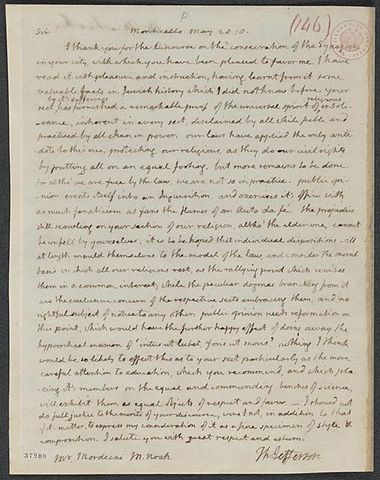 P
(146)
Sir Monticello May 28. 18.
I thank you for the Discourse on the consecration of the Synagogue
in your city, with which you have been pleased to favor me. I have
read it with pleasure and instruction, having learnt from it some
valuable facts in Jewish history which I did not know before. your
by it's sufferings religious
sect has furnished a remarkable proof of the universal spirit of intole-
-rance, inherent in every sect, disclaimed by all while feeble and
practised by all when in power. our laws have applied the only anti-
dote to this vice, protecting our religious, as they do our civil rights
by putting all on an equal footing. but more remains to be done
for altho' we are free by the law, we are not so in practice. public opi-
-nion erects itself into an Inquisition, and exercises it's office with
as much fanaticism as fans the flames of an Auto da fé. the prejudice
still scowling on your section of our religion, altho' the elder one, cannot
be unfelt by yourselves. it is to be hoped that individual dispositions will
at length mould themselves to the model of the law, and consider the moral
basis on which all our religions rest, as the rallying point which unites
them in a common interest; while the peculiar dogmas branching from it
are the exclusive concern of the respective sects embracing them, and no
rightful subject of notice to any other. public opinion needs reformation on
this point, which would have the further happy effect of doing away the
hypocritical maxim of 'intus ut lubet, foris ut moris'. nothing I think
would be so likely to effect this as to your sect particularly as the more
careful attention to education, which you recommend, and which pla-
cing it's members on the equal and commanding benches of science,
will exhibit them as equal objects of respect and favor. I should not
do full justice to the merits of your discourse, were I not, in addition to that
of it's matter, to express my consideration of it as a fine specimen of style &
composition. I salute you with great respect and esteem.
Th: Jefferson
37988 Mr. Mordecai M. Noah.